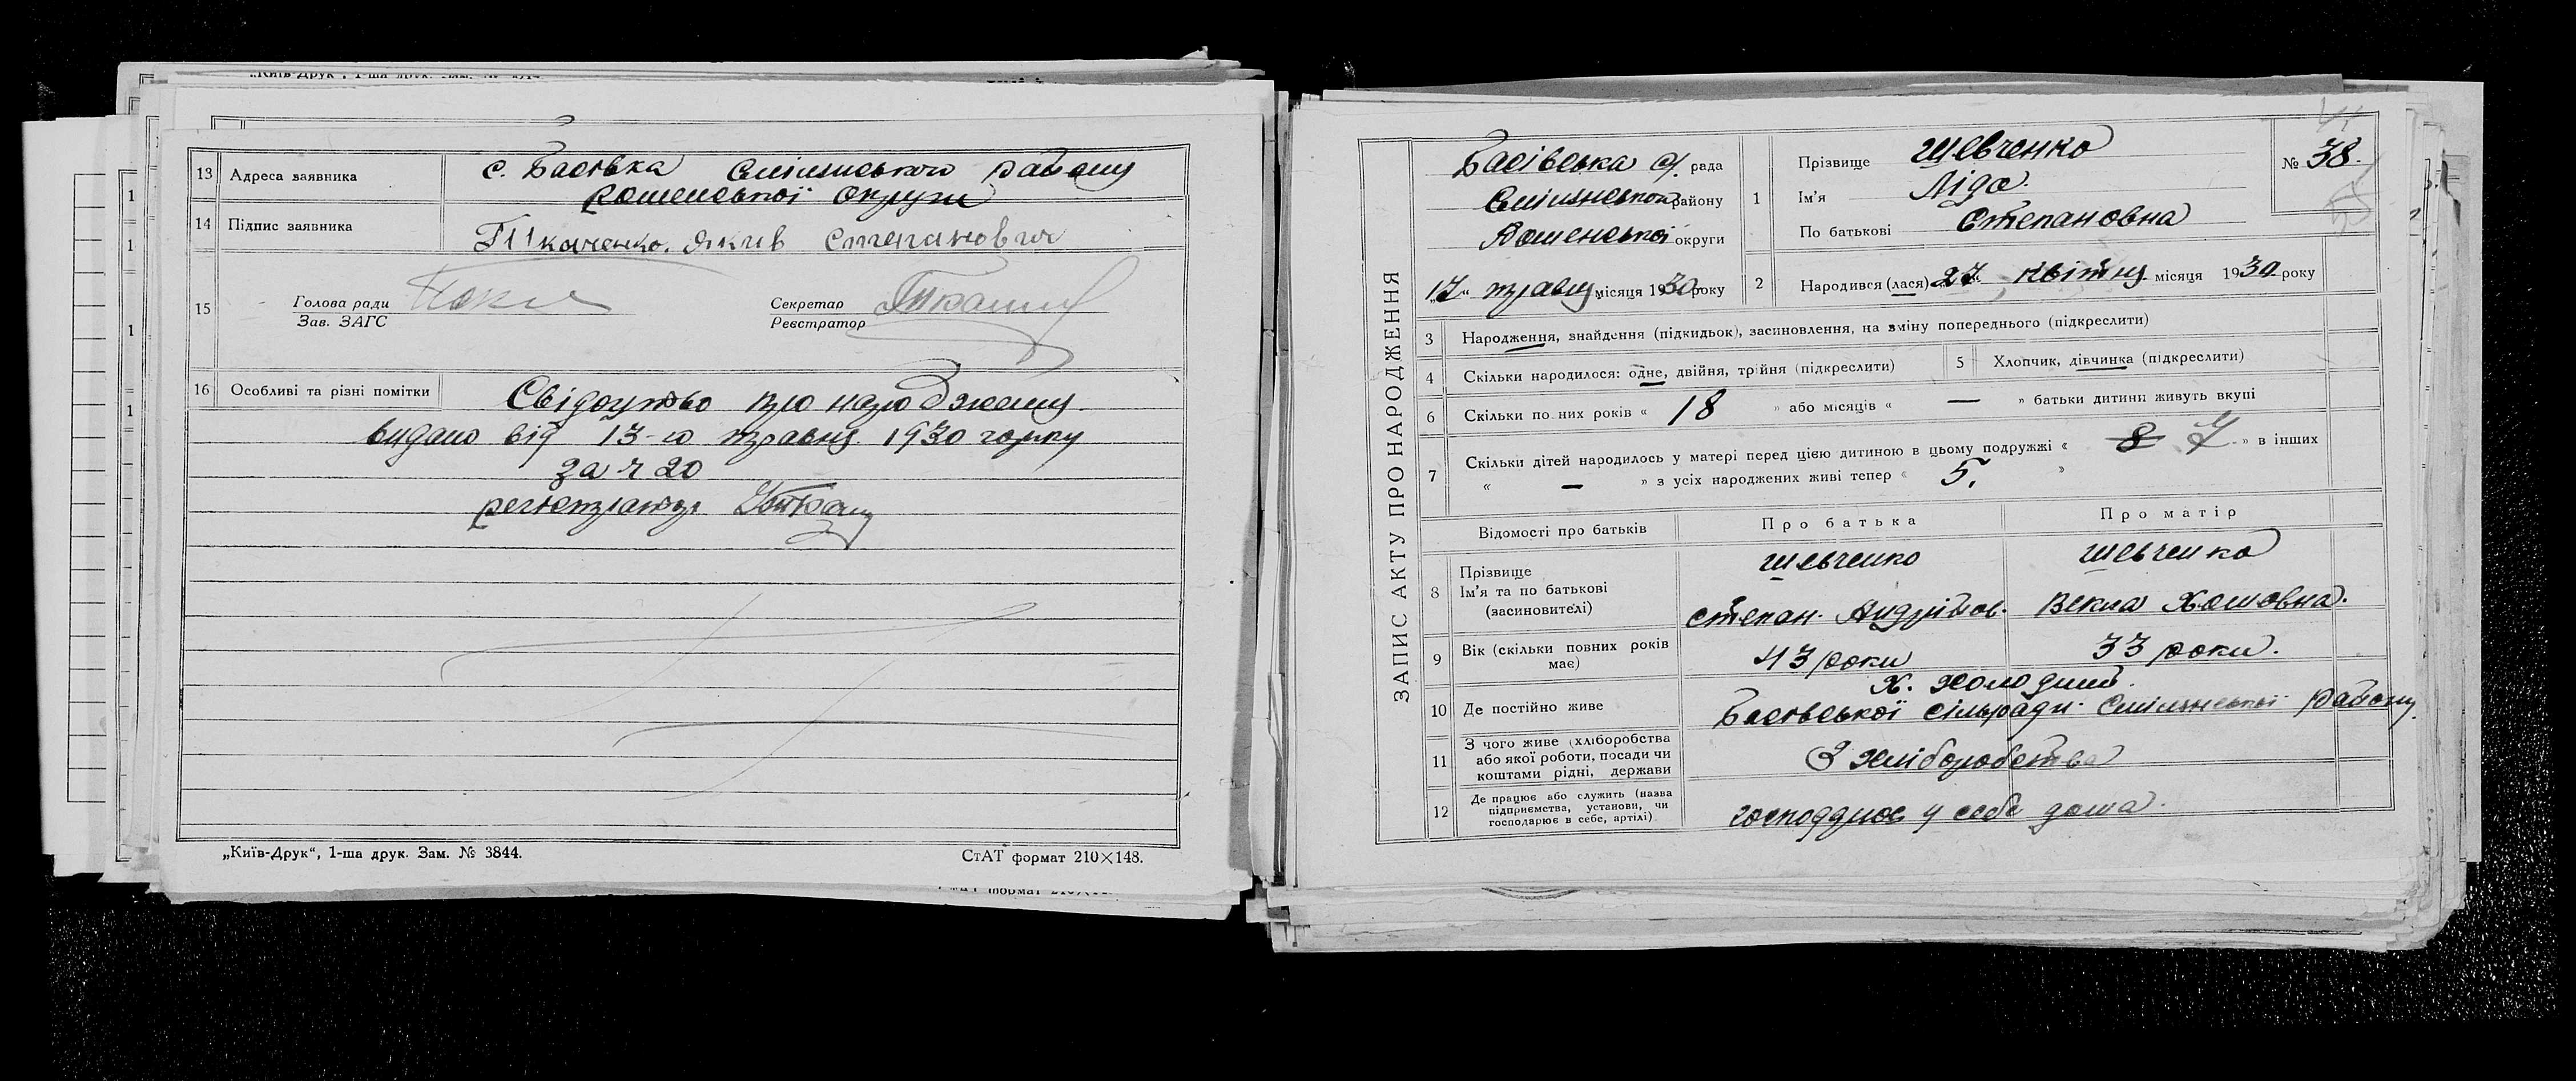 „Київ-Друк", 1-ша друк. Зам. №
13 Адреса заявника с. Басівка Смілянського району
Роменської округи
14 Підпис заявника Ткаченко. Яків Степанович
15 Голова ради
Зав. ЗАГС
Секретар
Реєстратор
16 Особливі та різні помітки Свідоцтво про народження
видано від 13-го травня 1930 року
за ч 20
реєстратор
„Київ-Друк", 1-ша друк. Зам. № 3844.
СтАТ формат 210×148.
ЗАПИС АКТУ ПРО НАРОДЖЕННЯ
Басівська с/. рада
Смілянського району
Роменської округи
„17" травня місяця 1930 року
1 Прізвище Шевченко
Ім'я Ліда.
По батькові Степановна
№ 38.
2 Народився (лася) „27" квітня місяця 1930 року
3 Народження, знайдення (підкидьок), засиновлення, на зміну попереднього (підкреслити)
4 Скільки народилося: одне, двійня, трійня (підкреслити)
5 Хлопчик, дівчинка (підкреслити)
6 Скільки повних років « 18 » або місяців « — » батьки дитини живуть вкупі
7 Скільки дітей народилось у матері перед цією дитиною в цьому подружжі « 8 7 » в інших
« — » з усіх народжених живі тепер « 5. »
Відомості про батьків Про батька Про матір
8 Прізвище
Ім'я та по батькові
(засиновителі)
Шевченко
Степан. Андрійов.
Шевченко
Векла Хомовна.
9 Вік (скільки повних років має) 43 роки 33 роки.
10 Де постійно живе х. Холодний.
Басівської сільради. Смілянської району.
11 З чого живе (хліборобства
або якої роботи, посади чи
коштами рідні, держави
З хліборобства
12 Де працює або служить (назва
підприємства, установи, чи
господарює в себе, артілі)
у себе дома.